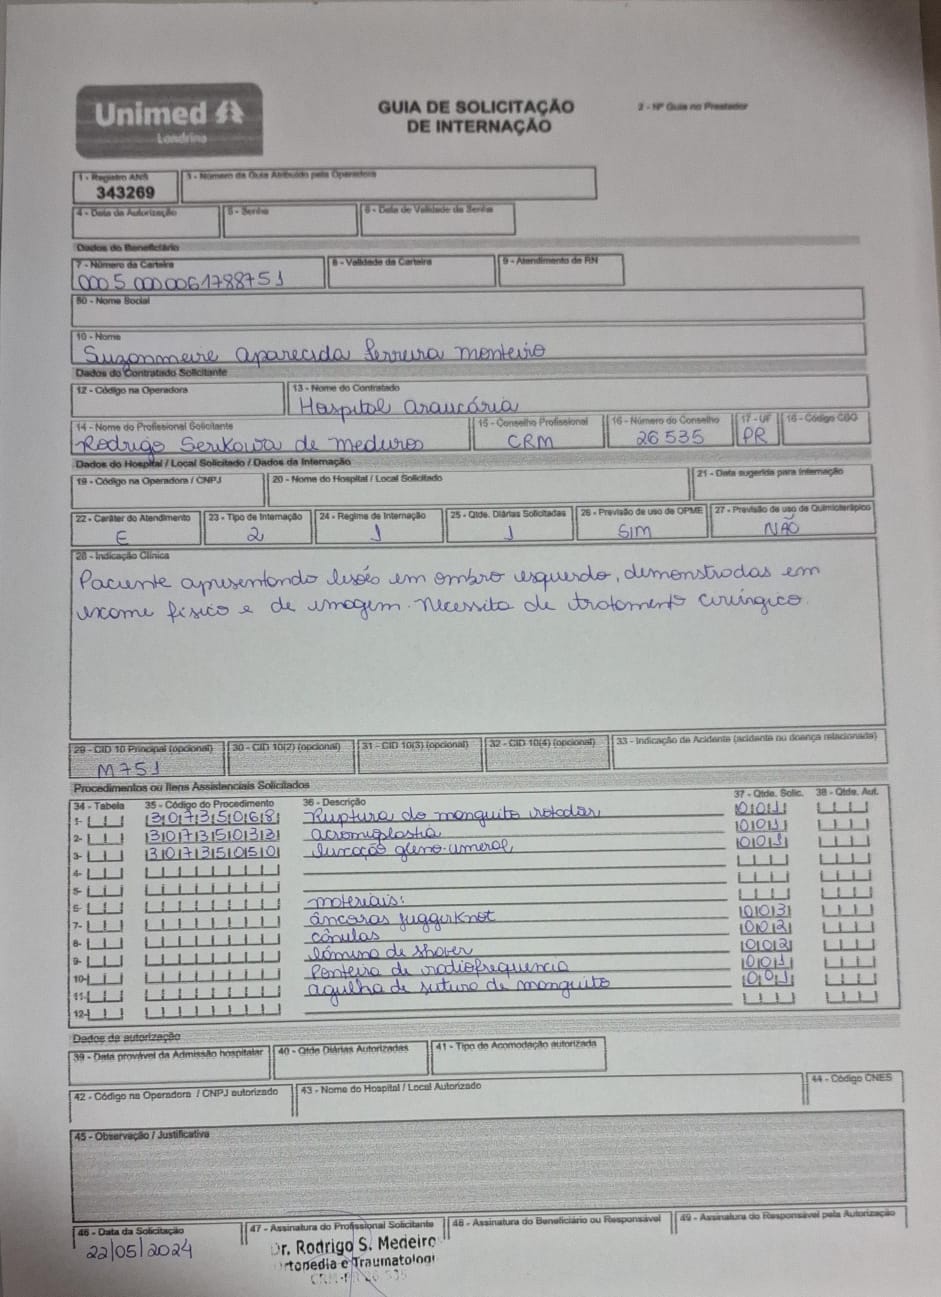 Unimed
Londrina
GUIA DE SOLICITAÇÃO
DE INTERNAÇÃO
2 - Nº Guia no Prestador
1 - Registro ANS
343269
3 - Número da Guia Atribuído pela Operadora
4 - Data da Autorização
5 - Senha
6 - Data de Validade da Senha
Dados do Beneficiário
7 - Número da Carteira
0005 0000061788751
8 - Validade da Carteira
9 - Atendimento de RN
50 - Nome Social
10 - Nome
Suzonmeire aparecida Ferreira monteiro
Dados do Contratado Solicitante
12 - Código na Operadora
13 - Nome do Contratado
Hospital araucária
14 - Nome do Profissional Solicitante
Rodrigo Serikawa de Medeiros
15 - Conselho Profissional
CRM
16 - Número do Conselho
26 535
17 - UF
PR
18 - Código CBO
Dados do Hospital / Local Solicitado / Dados da Internação
19 - Código na Operadora / CNPJ
20 - Nome do Hospital / Local Solicitado
21 - Data sugerida para internação
22 - Caráter do Atendimento
E
23 - Tipo de Internação
2
24 - Regime de Internação
1
25 - Qtde. Diárias Solicitadas
1
26 - Previsão de uso de OPME
SIM
27 - Previsão de uso de Quimioterápico
NÃO
28 - Indicação Clínica
Paciente apresentando lesões em ombro esquerdo, demonstradas em
exame físico e de imagem. Necessita de tratamento cirúrgico.
29 - CID 10 Principal (opcional)
M751
30 - CID 10(2) (opcional)
31 - CID 10(3) (opcional)
32 - CID 10(4) (opcional)
33 - Indicação de Acidente (acidente ou doença relacionada)
Procedimentos ou Itens Assistenciais Solicitados
34 - Tabela 35 - Código do Procedimento 36 - Descrição 37 - Qtde. Solic. 38 - Qtde. Aut.
1- 30735068 Ruptura do manguito rotador 001
2- 30735033 acromioplastia 001
3- 30735050 luxação gleno-umeral 001
4-
5-
6- materiais:
7- âncoras juggerknot 003
8- cânulas 002
9- lâmina de shaver 002
10- Ponteira de radiofrequencia 001
11- agulha de sutura de manguito 001
12-
Dados da autorização
39 - Data provável da Admissão hospitalar
40 - Qtde Diárias Autorizadas
41 - Tipo de Acomodação autorizada
42 - Código na Operadora / CNPJ autorizado
43 - Nome do Hospital / Local Autorizado
44 - Código CNES
45 - Observação / Justificativa
46 - Data da Solicitação
22/05/2024
47 - Assinatura do Profissional Solicitante
Dr. Rodrigo S. Medeiro
rtopedia e Traumatologi
CRM-PR 26.535
48 - Assinatura do Beneficiário ou Responsável
49 - Assinatura do Responsável pela Autorização